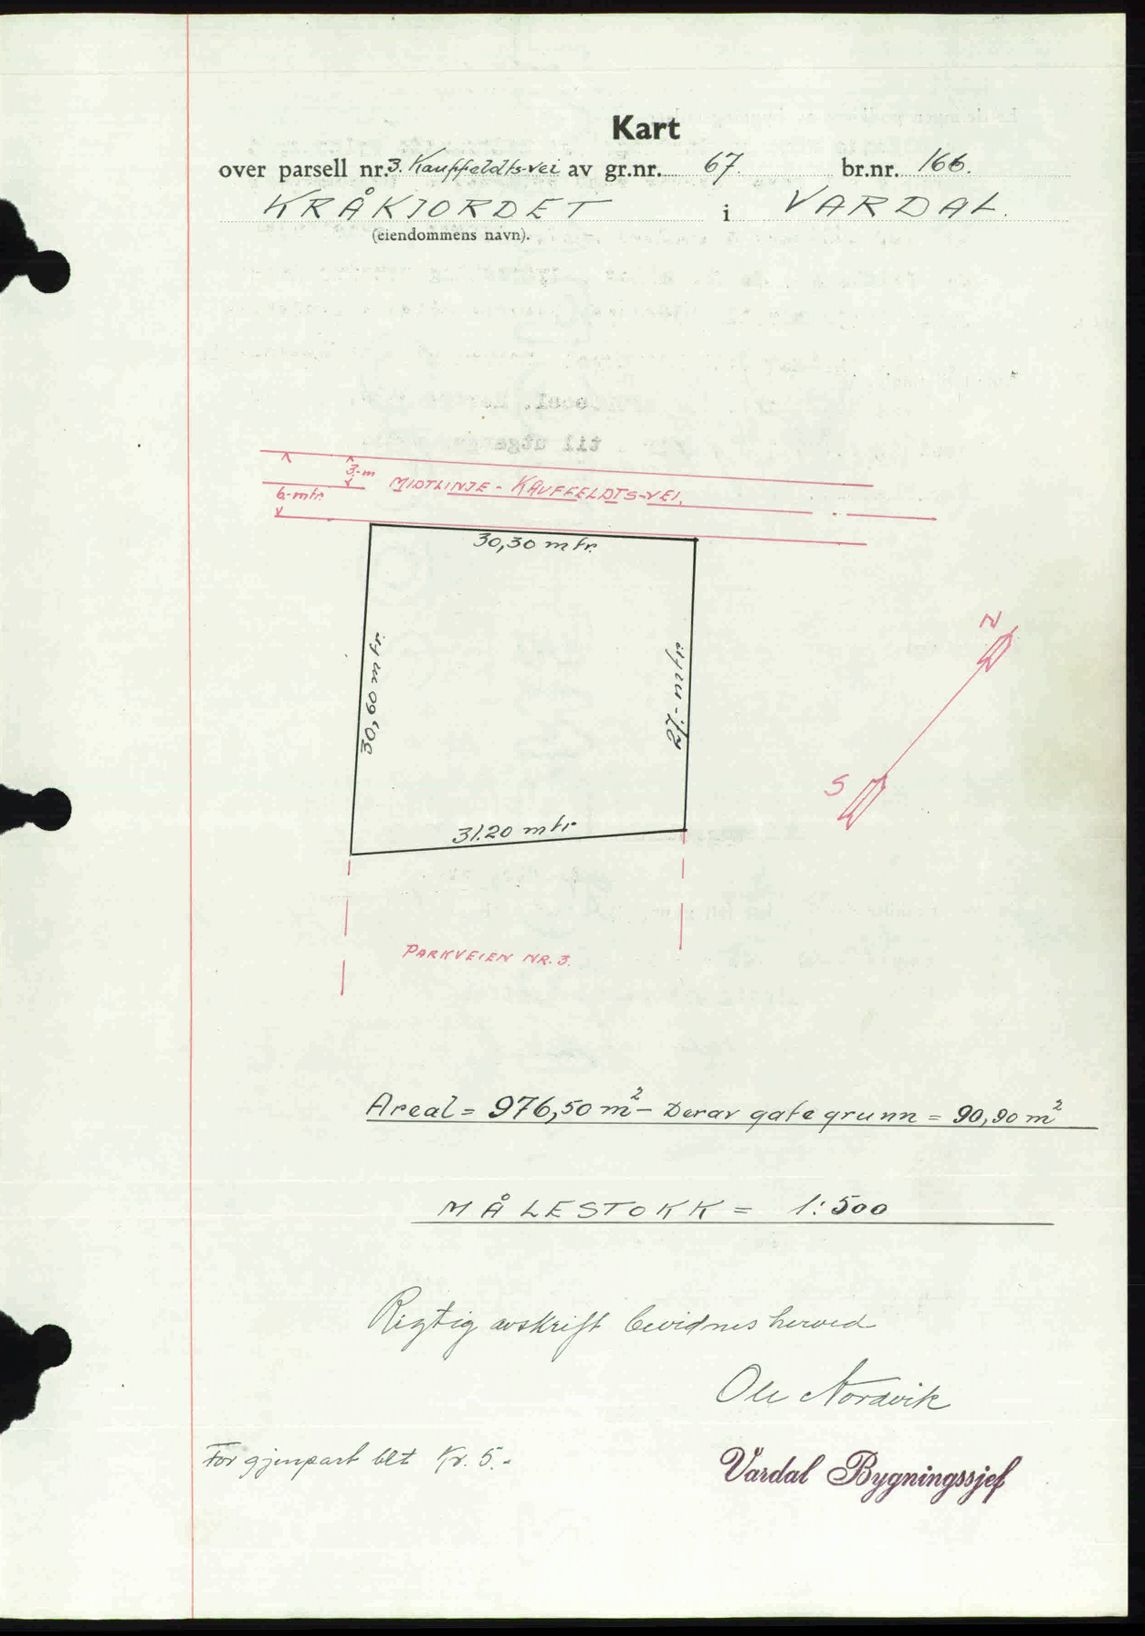 Kart
over parsell nr. 3. Kauffeldts-vei av gr.nr. 67. br.nr. 166.
KRÅKJORDET i VARDAL.
(eiendommens navn).
3-m
MIDTLINJE - KAUFFELDTS-VEI.
6-mtr
30,30 mtr.
30,60 mtr
27,- mtr
31.20 mtr
N
S
PARKVEIEN NR. 3.
Areal = 976,50 m² - Derav gategrunn = 90,90 m²
MÅLESTOKK = 1:500
Rigtig avskrift bevidnes herved
Ole Nordvik
For gjenpart blt Kr. 5.-
Vardal Bygningssjef